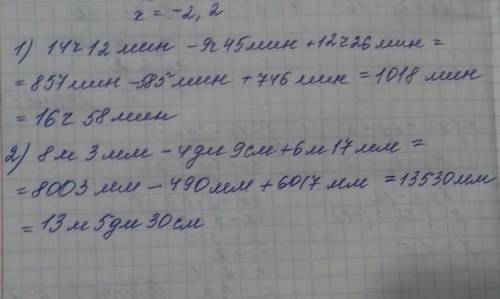 x = -2,2
1) 14ч 12 мин - 9ч 45 мин + 12ч 26 мин =
= 857 мин - 585 мин + 746 мин = 1018 мин
= 16ч 58 мин
2) 8м 3 мм - 4 дм 9 см + 6 м 17 мм =
= 8003 мм - 490 мм + 6017 мм = 13530 мм
= 13 м 5 дм 30 см